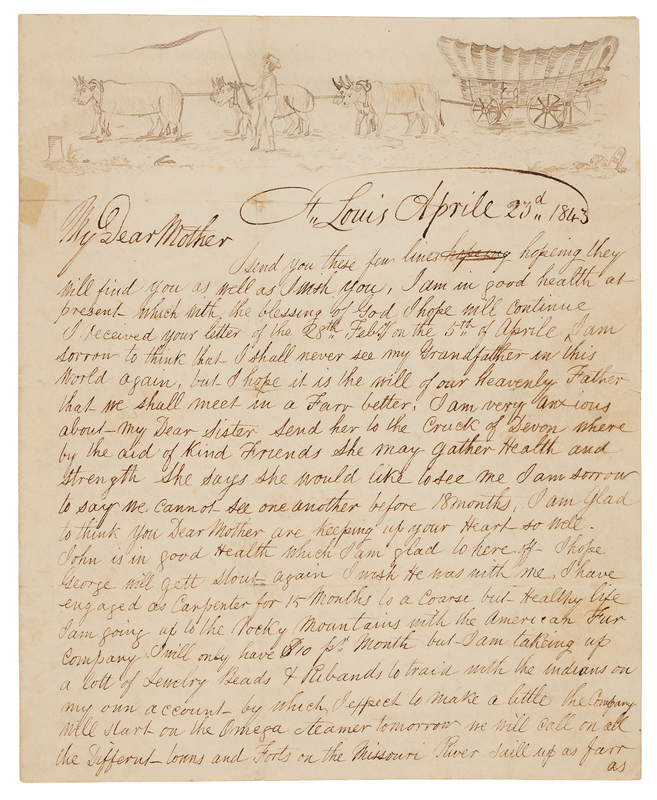 St. Louis Aprile 23d 1843
My Dear Mother
I send you these few lines hopeing hopeing they
will find you as well as I wish you, I am in good health at
present which with the blessing of God I hope will continue
I received your letter of the 28th Feby on the 5th of Aprile, I am
sorrow to think that I shall never see my Grandfather in this
World again, but I hope it is the will of our Heavenly Father
that we shall meet in a Farr better. I am very anxious
about my Dear Sister Send her to the Cruck of Devon where
by the aid of Kind Friends she may Gather Health and
Strength She says she would like to see me I am sorrow
to say we cannot see one another before 18 months, I am Glad
to think you Dear Mother are keeping up your Heart so well.
John is in good Health which I am glad to here off I hope
George will gett Stout again I wish He was with me, I have
engaged as Carpenter for 15 Months to a Coarse but Healthy life
I am going up to the Rocky Mountains with the American Fur
Company. I will only have $10 pr Month but I am takeing up
a lott of Jewelry Beads & Ribands to traid with the indians on
my own account by which I expect to make a little the Company
will start on the Omega Steamer tomorrow we will call on all
the Differnt towns and Forts on the Missouri River Saill up as farr
as